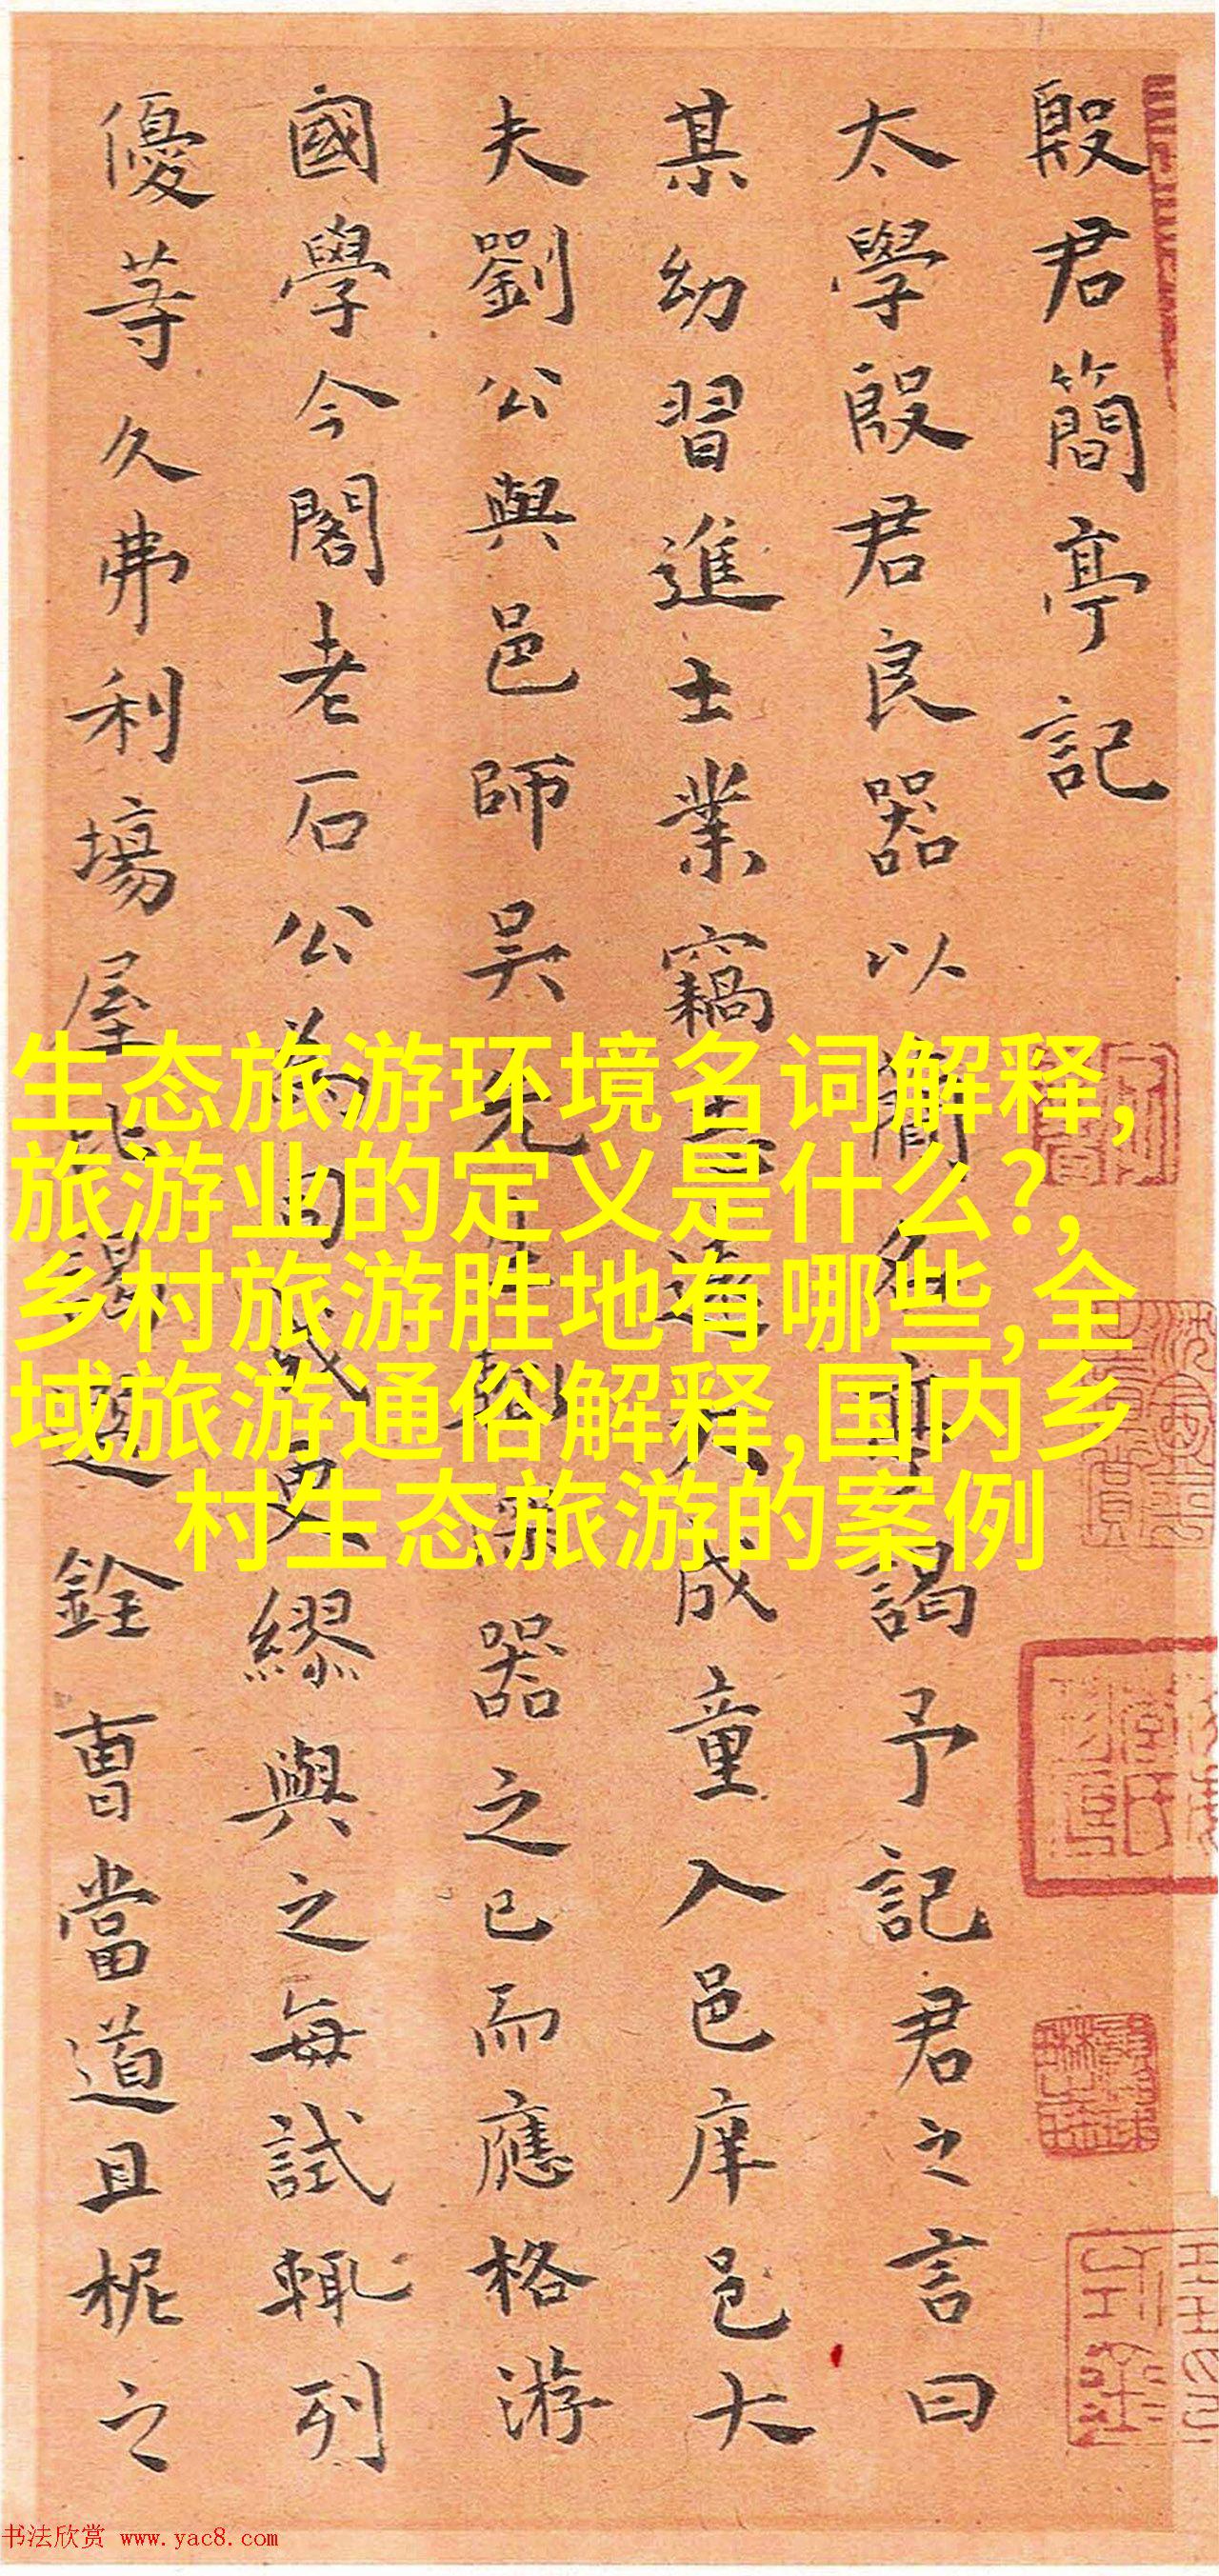 殷君簡亭記
太學殷君良器以簡名亭謁予記君之言曰
某幼習進士業竊志遠大成童入邑庠邑大
夫劉公與邑師吳先生輒深器之已而應格游
國學今閣老石公為司成更繆與之每試輒列
優等久弗利場屋比謁選銓曹當道且柅之
生态旅游环境名词解释,
旅游业的定义是什么?,
乡村旅游胜地有哪些,全
域旅游通俗解释,国内乡
村生态旅游的案例
书法欣赏 www.yac8.com